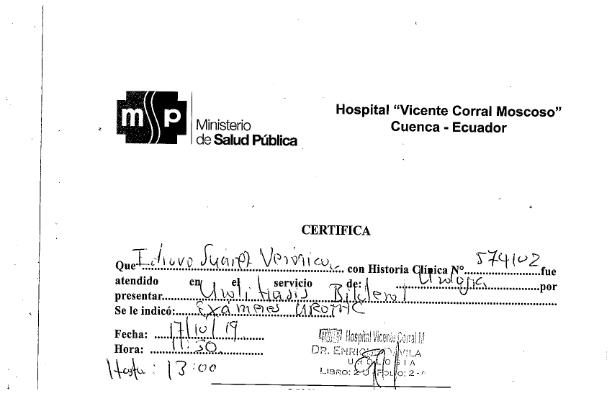 msp
Ministerio
de Salud Pública
Hospital "Vicente Corral Moscoso"
Cuenca - Ecuador
CERTIFICA
Que Suárez Verónica con Historia Clínica N°. 574102 fue
atendido en el servicio de: Urología por
presentar Urolitiasis Bilateral
Se le indicó: Exámenes
Fecha: 17/10/19
Hora: 11:30
Hasta: 13:00
Hospital Vicente Corral M
DR. ENRIQUE DAVILA
UROLOGIA
LIBRO: 2 FOLIO: 2